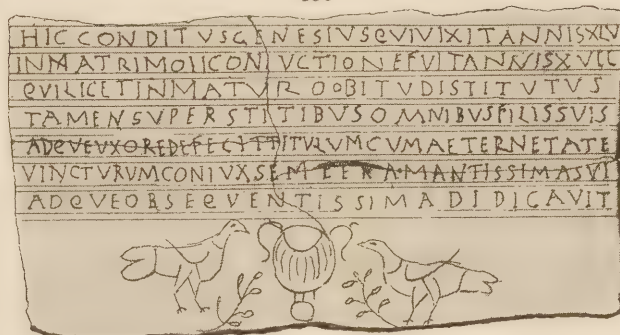 HIC CONDITVSGENESIVSQVIVIXITANNISXLV
INMATRIMOIICONIVCTIONEFVITANNISXVIII
QVILICETINMATVROOBITVDISTITVTVS
TAMENSVPERSTITIBVSOMNIBVSFILISSVIS
ADQVEVXOREDEFECITTITVLVMCVMAETERNETATE
VINCTVRVMCONIVXSEMPERAMANTISSIMASVI
ADQVEOBSEQVENTISSIMADIDICAVIT